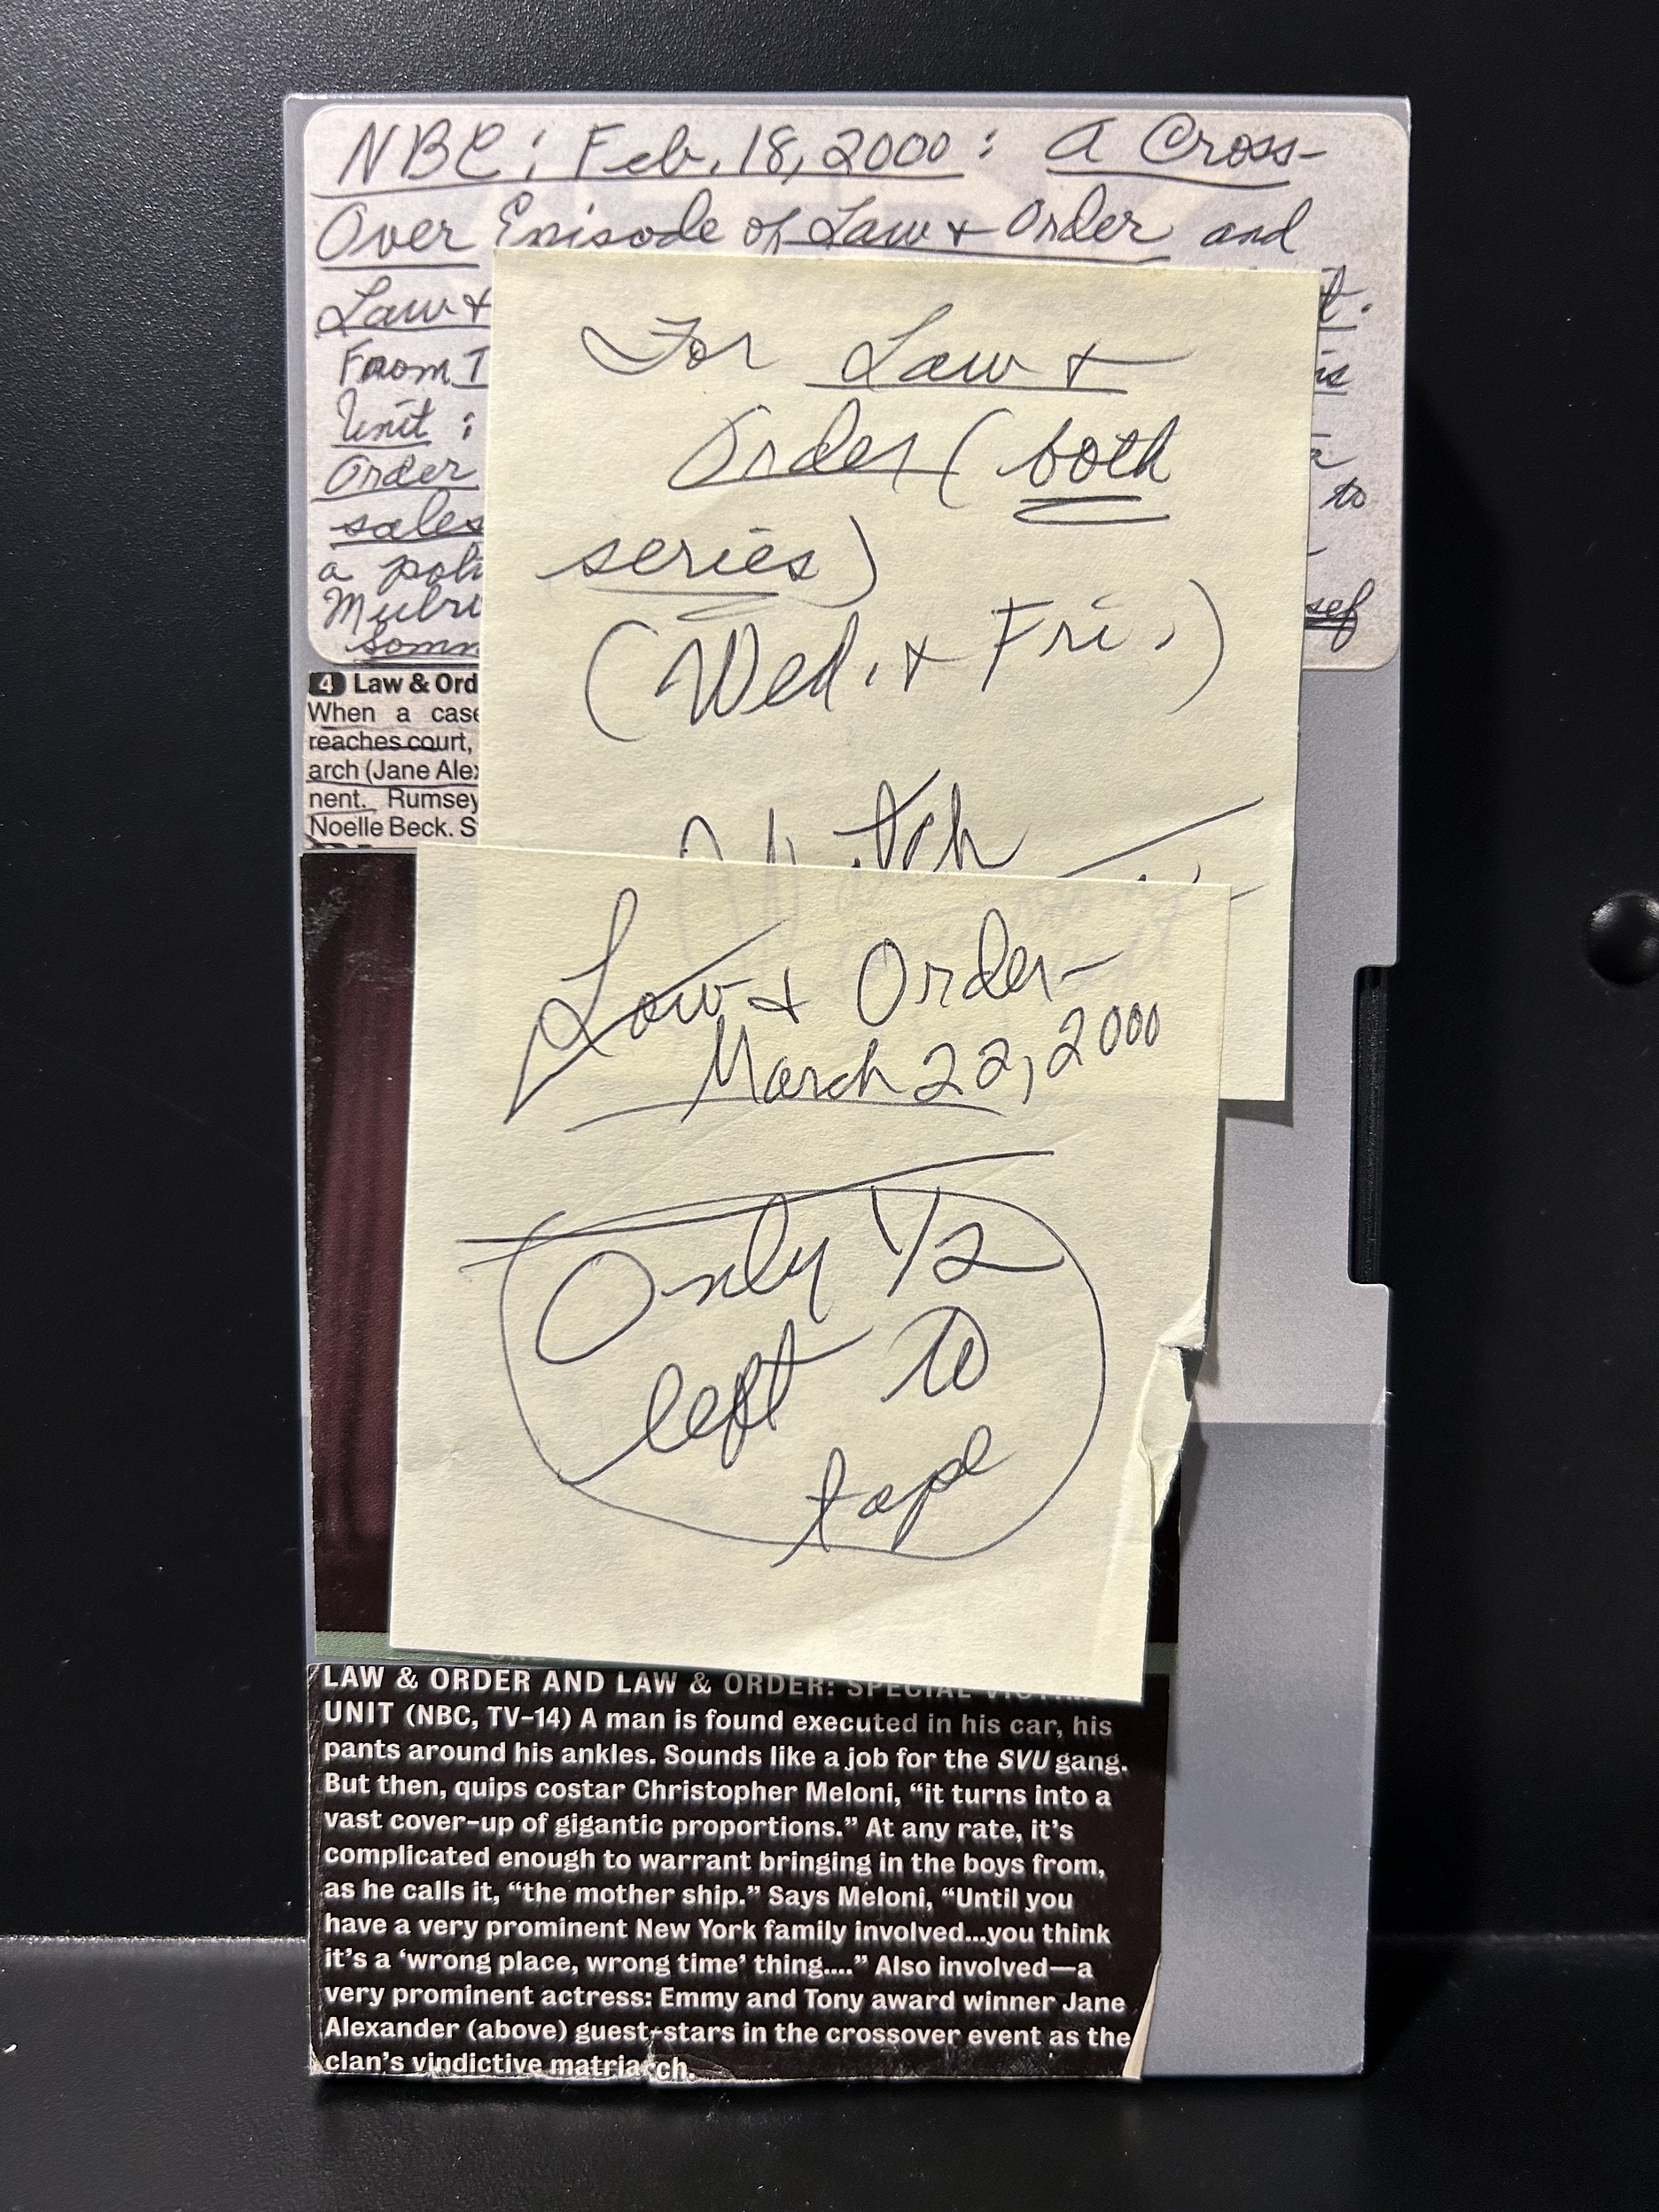 NBC; Feb. 18, 2000: A Cross-
Over Episode of Law & Order and
Law & t.
From T is
Unit:
Order to
sales
a poli
Mulru sef
Somm
For Law &
Order (both
series)
(Wed. & Fri.)
Law & Order-
March 22, 2000
Only 1/2
left to
tape
4 Law & Ord
When a case
reaches court,
arch (Jane Alex
nent. Rumsey
Noelle Beck. S
LAW & ORDER AND LAW & ORDER: SPECIAL
UNIT (NBC, TV-14) A man is found executed in his car, his
pants around his ankles. Sounds like a job for the SVU gang.
But then, quips costar Christopher Meloni, “it turns into a
vast cover-up of gigantic proportions.” At any rate, it’s
complicated enough to warrant bringing in the boys from,
as he calls it, “the mother ship.” Says Meloni, “Until you
have a very prominent New York family involved...you think
it’s a ‘wrong place, wrong time’ thing....” Also involved—a
very prominent actress: Emmy and Tony award winner Jane
Alexander (above) guest-stars in the crossover event as the
clan’s vindictive matriarch.